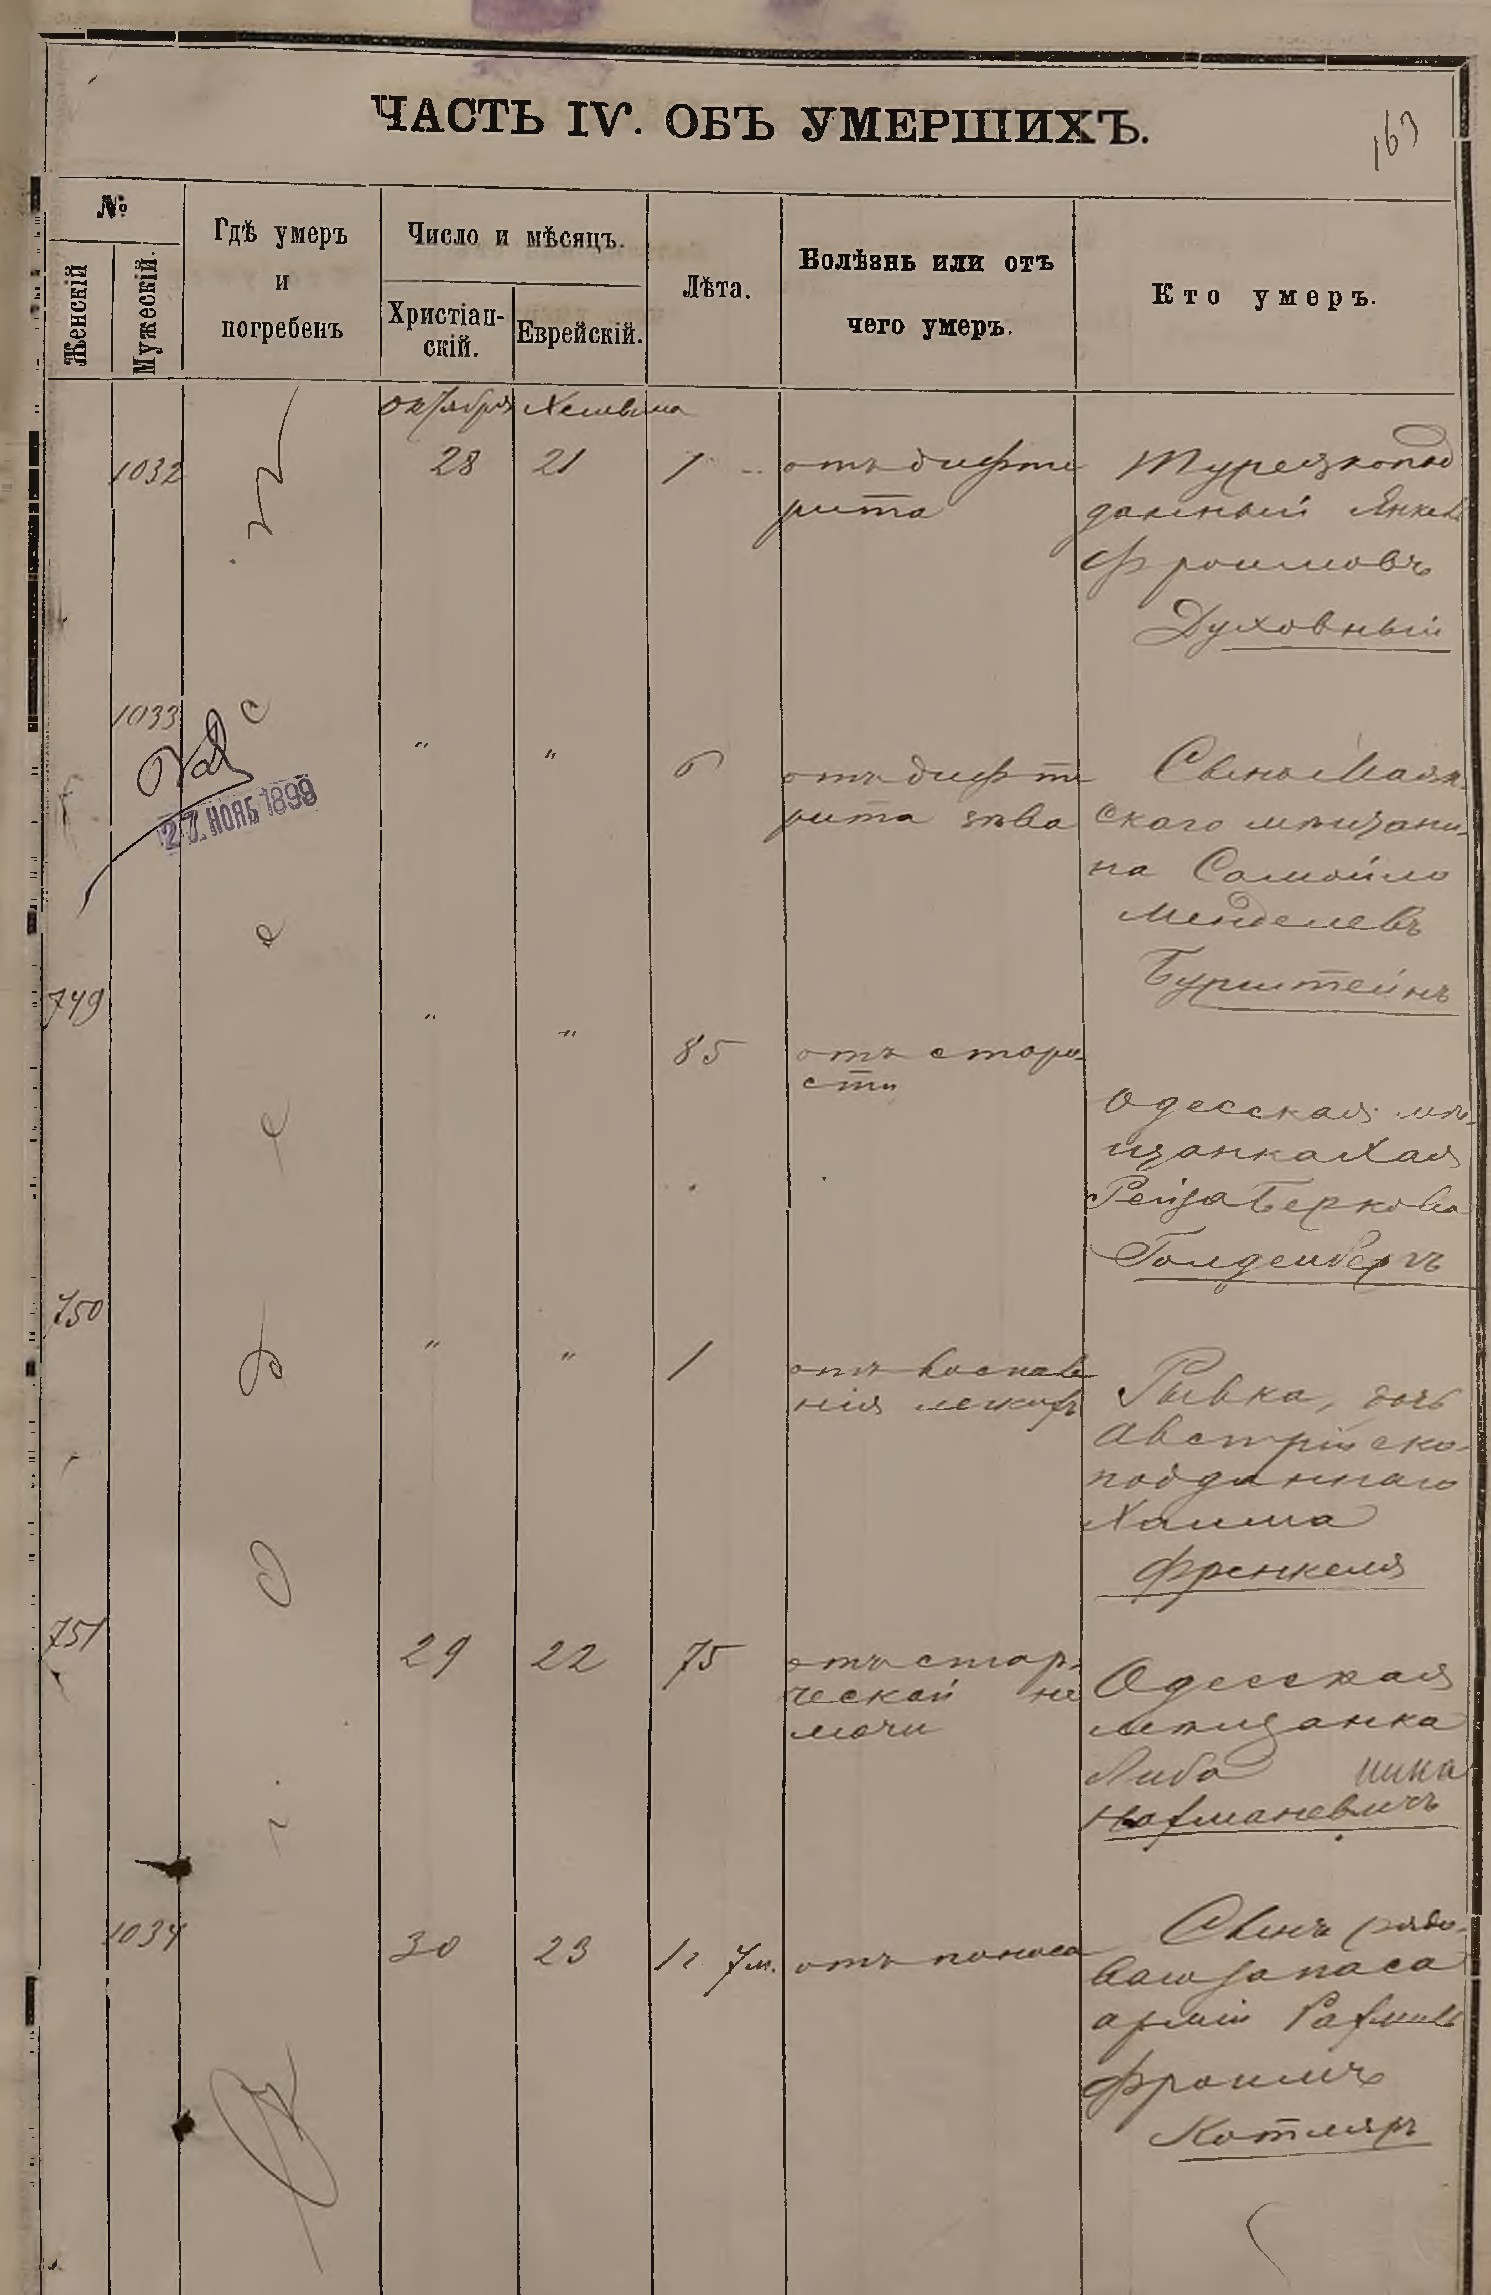 ЧАСТЬ IV. ОБЪ УМЕРШИХЪ.
163
№
Женскій
Мужескій.
Гдѣ умеръ
и
погребенъ
Число и мѣсяцъ.
Христіан-
скій.
Еврейскій.
Лѣта.
Болѣзнь или отъ
чего умеръ.
Кто умеръ.
Октября Хешвона
1032
28 21 1
отъ дифте
рита
Турецкопод
данный Янкель
Фроимовъ
Духовный
1033
27. НОЯБ 1899
" " 6
отъ дифте
рита зѣва
Сынъ Маяк-
скаго мѣщани-
на Самойло
Менделевъ
Бурштейнъ
749
" " 85
отъ старо-
сти
Одесская мѣ-
щанка Хая
Рейза Беркова
Голденбергъ
750
" " 1
отъ воспале
нія легкихъ
Рывка, дочь
Австрійско-
подданнаго
Хаима
Френкеля
751
29 22 75
отъ старче-
ческой не
мочи
Одесская
мѣщанка
Либа
Нахмановичъ
1034
30 23 1г 7м.
отъ поноса
Сынъ рядо-
ваго запаса
арміи Рахмиль
Фроимъ
Котляръ
Одессѣ